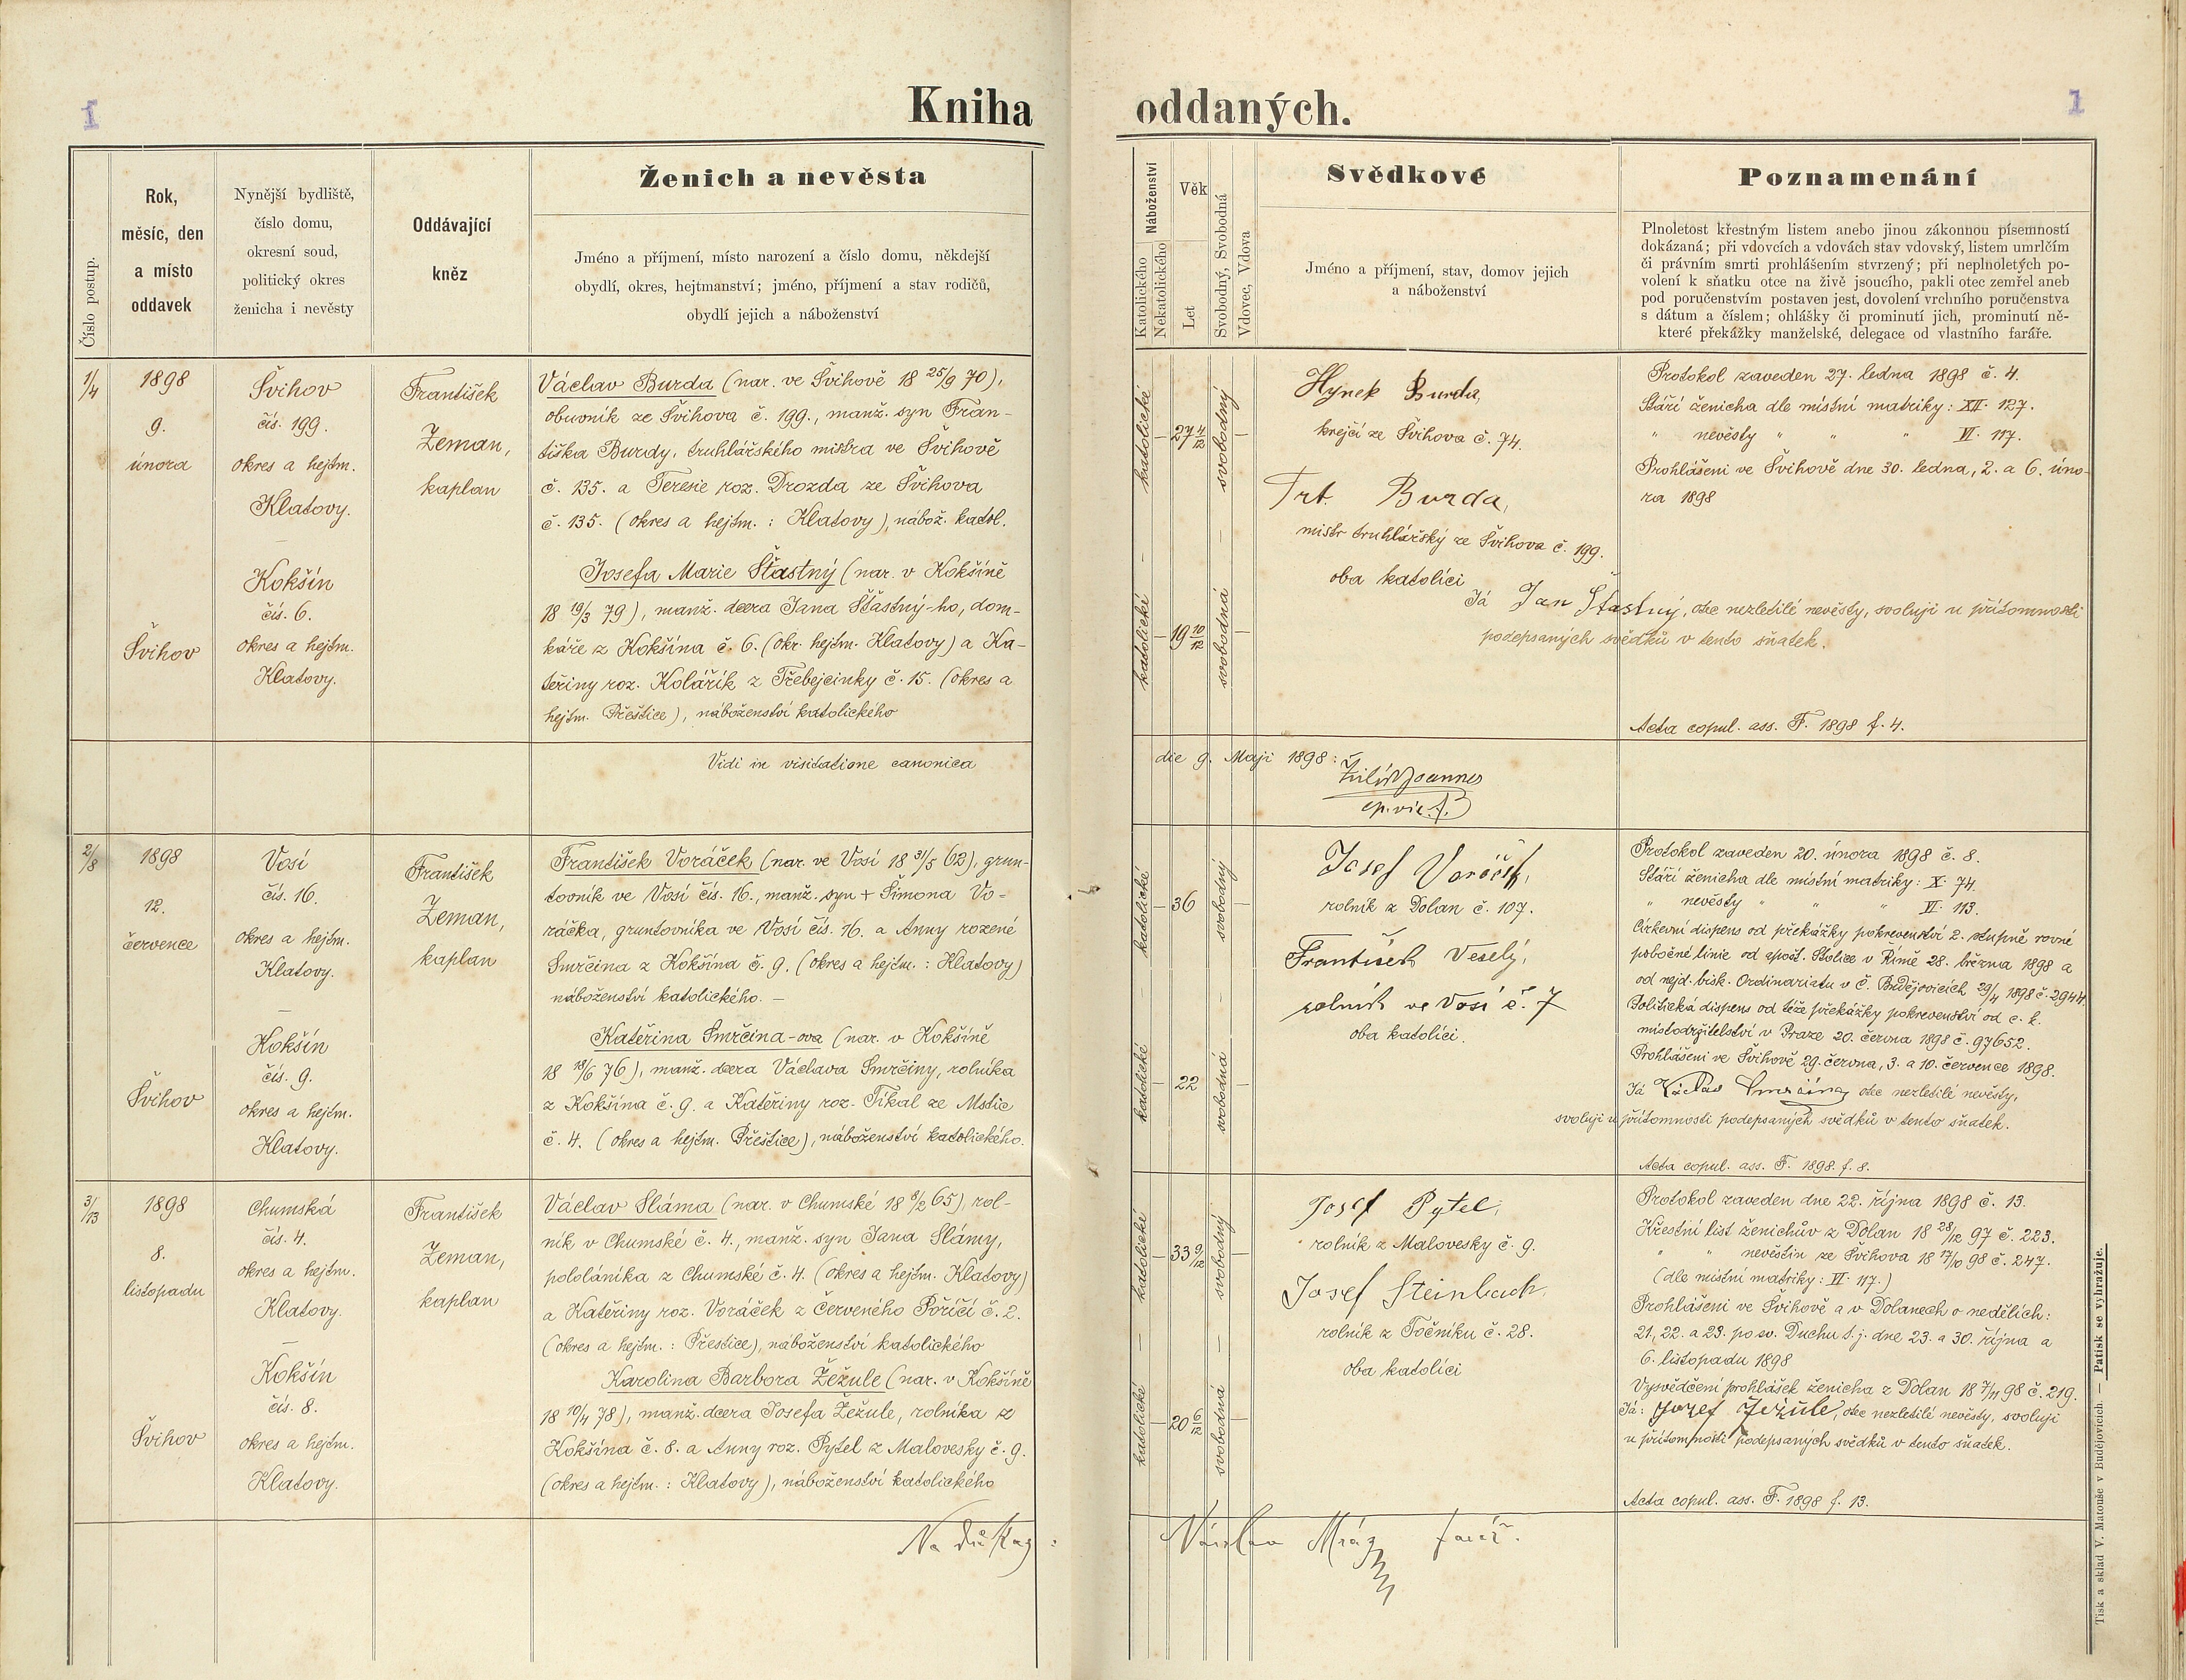 1
Kniha
oddaných.
1
Číslo postup.
Rok,
měsíc, den
a místo
oddavek
Nynější bydliště,
číslo domu,
okresní soud,
politický okres
ženicha i nevěsty
Oddávající
kněz
Ženich a nevěsta
Jméno a příjmení, místo narození a číslo domu, někdejší
obydlí, okres, hejtmanství; jméno, příjmení a stav rodičů,
obydlí jejich a náboženství
Náboženství
Katolického
Nekatolického
Věk
Let
Svobodný, Svobodná
Vdovec, Vdova
Svědkové
Jméno a příjmení, stav, domov jejich
a náboženství
Poznamenání
Plnoletost křestným listem anebo jinou zákonnou písemností
dokázaná; při vdovcích a vdovách stav vdovský, listem umrlčím
či právním smrti prohlášením stvrzený; při neplnoletých po-
volení k sňatku otce na živě jsoucího, pakli otec zemřel aneb
pod poručenstvím postaven jest, dovolení vrchního poručenstva
s dátum a číslem; ohlášky či prominutí jich, prominutí ně-
které překážky manželské, delegace od vlastního faráře.
1/4
1898
9.
února
Švihov
Švihov
čís. 199.
okres a hejtm.
Klatovy.
—
Kokšín
čís. 6.
okres a hejtm.
Klatovy.
František
Zeman,
kaplan
Václav Burda (nar. ve Švihově 18 25/9 70),
obuvník ze Švihova č. 199., manž. syn Fran-
tiška Burdy, truhlářského mistra ve Švihově
č. 135. a Teresie roz. Drozda ze Švihova
č. 135. (okres a hejtm. : Klatovy), nábož. katol.
Josefa Marie Šťastný (nar. v Kokšíně
18 19/3 79), manž. dcera Jana Šťastný-ho, dom-
káře z Kokšína č. 6. (okr. hejtm. Klatovy) a Ka-
teřiny roz. Kolářík z Třebejcinky č. 15. (okres a
hejtm. Přeštice), náboženství katolického
katolické — 27 4/12 svobodný —
katolické — 19 10/12 svobodná —
Hynek Burda,
krejčí ze Švihova č. 74.
Frt. Burda,
mistr truhlářský ze Švihova č. 199.
oba katolíci
Protokol zaveden 27. ledna 1898 č. 4.
Stáří ženicha dle místní matriky: XII. 127.
" nevěsty " " " VI. 117.
Prohlášeni ve Švihově dne 30. ledna, 2. a 6. úno-
ra 1898
Já Jan Šťastný, otec nezletilé nevěsty, svoluji u přítomnosti
podepsaných svědků v tento sňatek.
Acta copul. ass. F. 1898 f. 4.
Vidi in visitatione canonica
die 9. Maji 1898:
Joannes
ep. vic. f.
2/8
1898
12.
července
Švihov
Vosí
čís. 16.
okres a hejtm.
Klatovy.
—
Kokšín
čís. 9.
okres a hejtm.
Klatovy.
František
Zeman,
kaplan
František Voráček (nar. ve Vosí 18 31/5 62), grun-
tovník ve Vosí čís. 16., manž. syn + Šimona Vo-
ráčka, gruntovníka ve Vosí čís. 16. a Anny rozené
Smrčina z Kokšína č. 9. (okres a hejtm. : Klatovy)
náboženství katolického. —
Kateřina Smrčina-ova (nar. v Kokšíně
18 18/6 76), manž. dcera Václava Smrčiny, rolníka
z Kokšína č. 9. a Kateřiny roz. Tikal ze Mstic
č. 4. (okres a hejtm. Přeštice), náboženství katolického.
katolické — 36 svobodný —
katolické — 22 svobodná —
Josef Voráček,
rolník z Dolan č. 107.
František Veselý,
rolník ve Vosí č. 7
oba katolíci.
Protokol zaveden 20. února 1898 č. 8.
Stáří ženicha dle místní matriky: X. 74.
" nevěsty " " " VI. 113.
Církevní dispens od překážky pokrevenství 2. stupně rovné
pobočné linie od apošt. Stolice v Římě 28. března 1898 a
od nejd. bisk. Ordinariatu v Č. Budějovicích 29/4 1898 č. 2944.
Politická dispens od téže překážky pokrevenství od c. k.
místodržitelství v Praze 20. června 1898 č. 97652.
Prohlášeni ve Švihově 29. června, 3. a 10. července 1898.
Já Václav Smrčina otec nezletilé nevěsty,
svoluji u přítomnosti podepsaných svědků v tento sňatek.
Acta copul. ass. F. 1898. f. 8.
3/13
1898
8.
listopadu
Švihov
Chumská
čís. 4.
okres a hejtm.
Klatovy.
—
Kokšín
čís. 8.
okres a hejtm.
Klatovy.
František
Zeman,
kaplan
Václav Sláma (nar. v Chumské 18 8/2 65), rol-
ník v Chumské č. 4., manž. syn Jana Slámy,
pololáníka z Chumské č. 4. (okres a hejtm. Klatovy)
a Kateřiny roz. Voráček z Červeného Poříčí č. 2.
(okres a hejtm. : Přestice), náboženství katolického
Karolina Barbora Žežule (nar. v Kokšíně
18 10/4 78), manž. dcera Josefa Žežule, rolníka z
Kokšína č. 8. a Anny roz. Pytel z Malovesky č. 9.
(okres a hejtm. : Klatovy), náboženství katolického
katolické — 33 9/12 svobodný —
katolické — 20 6/12 svobodná —
Josef Pytel,
rolník z Malovesky č. 9.
Josef Steinbach,
rolník z Točníku č. 28.
oba katolíci
Protokol zaveden dne 22. října 1898 č. 13.
Křestní list ženichův z Dolan 18 28/12 97 č. 223.
" " nevěstin ze Švihova 18 17/10 98 č. 247.
(dle místní matriky: VI. 117.)
Prohlášeni ve Švihově a v Dolanech o nedělích:
21., 22. a 23. po sv. Duchu t. j. dne 23. a 30. října a
6. listopadu 1898
Vysvědčení prohlášek ženicha z Dolan 18 7/11 98 č. 219.
Já: Jozef Žežule, otec nezletilé nevěsty, svoluji
u přítomnosti podepsaných svědků v tento sňatek.
Acta copul. ass. F. 1898 f. 13.
Na důkaz:
Václav Mráz farář.
Tisk a sklad V. Matouše v Budějovicích. — Patisk se vyhražuje.